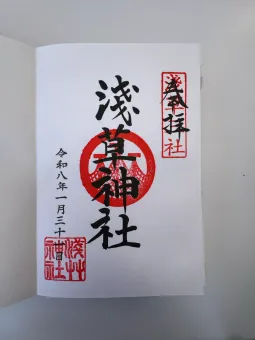 奉拝
浅草神社
令和八年一月三十日
浅草
神社